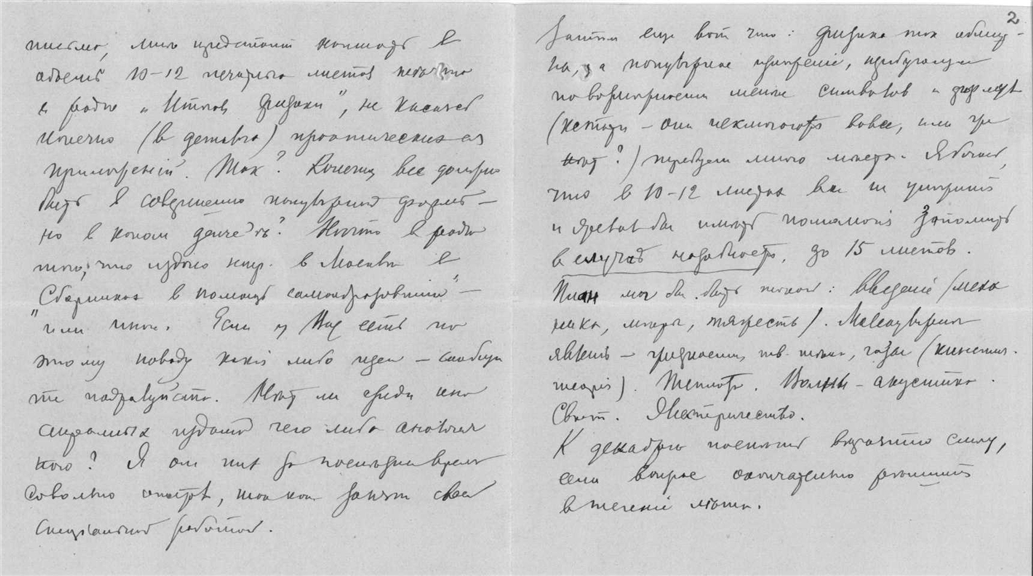 письмо, мне предстоит написать в
объеме 10-12 печатных листов нечто
в роде „Итогов физики", не касаясь
конечно (в деталях) практических ея
приложений. Так? Конечно все должно
быть в совершенно популярной форме —
но в каком духе? Нечто в роде
того, что издано напр. в Москве в
"Сборниках в помощь самообразованию" —
или иное. Если у Вас есть по
этому поводу какия либо идеи — сообщи
те пожалуйста. Нет ли среди ино
странных изданий чего либо аналогич
ного? Я за последнее время
довольно отстал, так как занят своей
специальной работой.
2
Затем еще вот что: физика так обшир
на, а популярное изложение, прибегающее
по возможности менее символов и формул
(кстати — они исключаются вовсе, или
нет?) требует много места. Я боюсь,
что в 10-12 листах все не уместить
и желал бы иметь полномочие дополнить
в случае надобности, до 15 листов.
План мог бы быть таков: Введение (меха
ника, меры, тяжесть). Молекулярные
явления — жидкости, тв. тела, газы (кинетич.
теория). Теплота. Волны — акустика.
Свет. Электричество.
К декабрю
если вопрос окончательно решится
в течение лета.